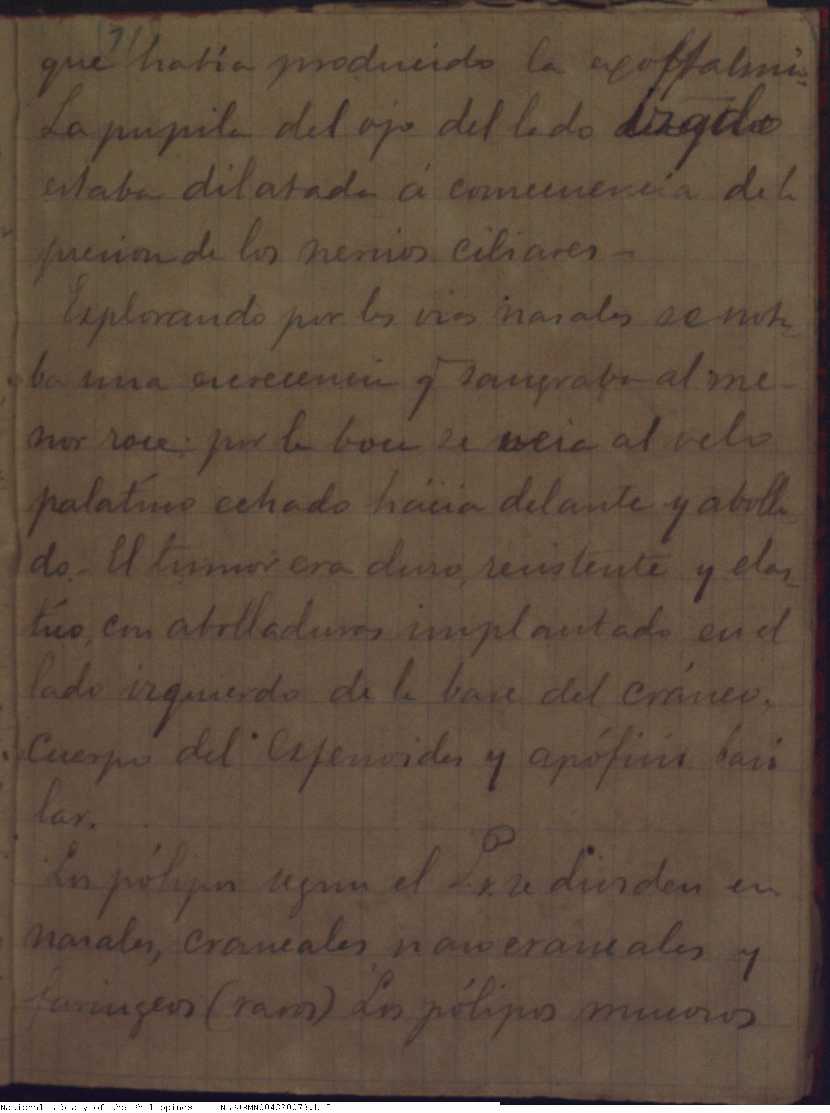 que habia producido la exoftalmia
La pupila del ojo del lado izqdo
estaba dilatada á consecuencia de la
presion de los nervios ciliares -
Explorando por las vias nasales se nota-
ba una excrecencia q̄ sangraba al me-
nor roce: por la boca se veia al velo
palatino echado hácia delante y abolla-
do. - El tumor era duro, resistente y elas-
tico, con abolladuras implantado en el
lado izquierdo de la base del cráneo,
cuerpo del esfenoides y apófisis basi
lar.
Los pólipos segun el se dividen en
nasales, craneales nasocraneales y
faringeos (raros) Los pólipos mucosos
National Library of the Philippines